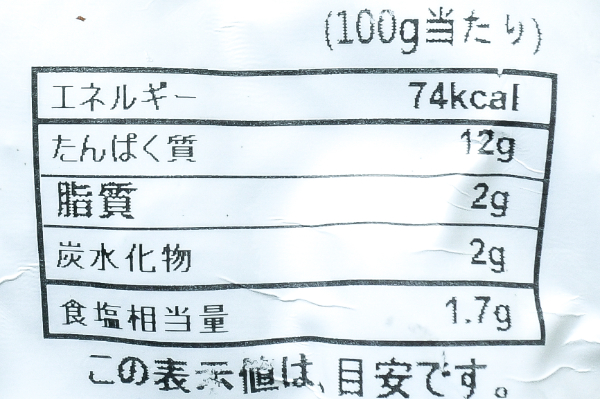 (100g当たり)
エネルギー 74kcal
たんぱく質 12g
脂質 2g
炭水化物 2g
食塩相当量 1.7g
この表示値は、目安です。